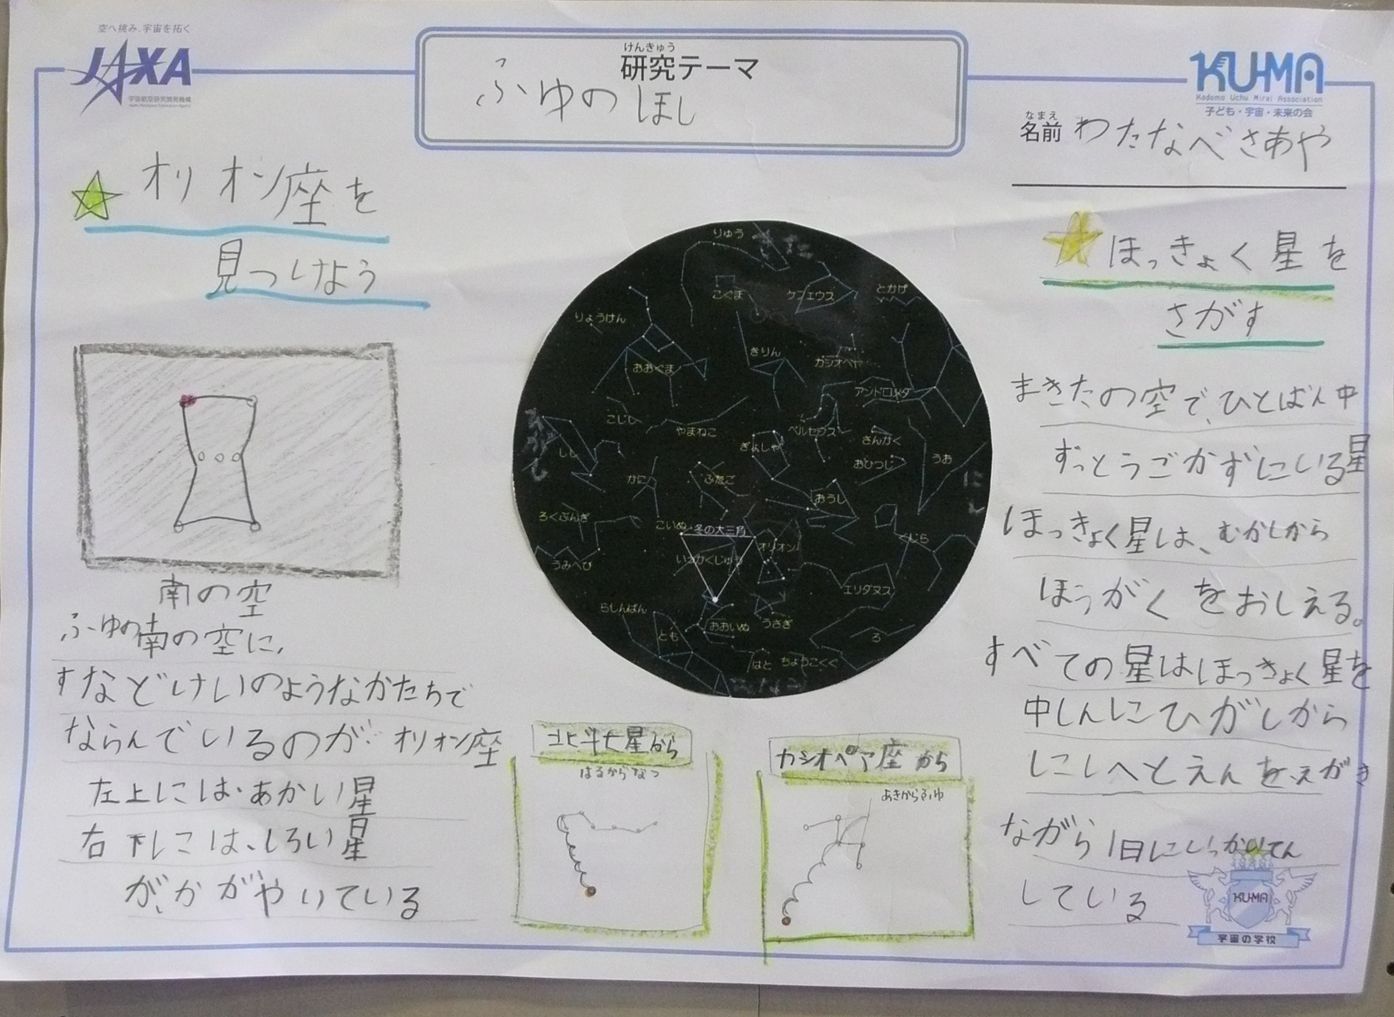 空へ挑み、宇宙を拓く
JAXA
宇宙航空研究開発機構
Japan Aerospace Exploration Agency
けんきゅう
研究テーマ
ふゆのほし
KU-MA
Kodomo Uchu Mirai Association
子ども・宇宙・未来の会
なまえ
名前 わたなべさあや
オリオン座を
見つけよう
南の空
ふゆの南の空に、
すなどけいのようなかたちで
ならんでいるのが オリオン座
左上には、あかい星
右下には、しろい星
が、かがやいている
りゅう
こぐま
ケフェウス
とかげ
りょうけん
おおぐま
きりん
カシオペヤ
アンドロメダ
こじし
やまねこ
ペルセウス
ぎょしゃ
さんかく
しし
おひつじ
うお
かに
ふたご
おうし
ひがし
にし
ろくぶんぎ
こいぬ
冬の大三角
くじら
いっかくじゅう
オリオン
うみへび
エリダヌス
らしんばん
とも
おおいぬ
うさぎ
ろ
はと
ちょうこくぐ
みなみ
北斗七星から
はるからなつ
カシオペア座から
あきからふゆ
ほっきょく星を
さがす
まきたの空で、ひとばん中
ずっとうごかずにいる星
ほっきょく星は、むかしから
ほうがくをおしえる。
すべての星はほっきょく星を
中しんにひがしから
にしへとえんをえがき
ながら1日に1かいてん
している
KU-MA
宇宙の学校